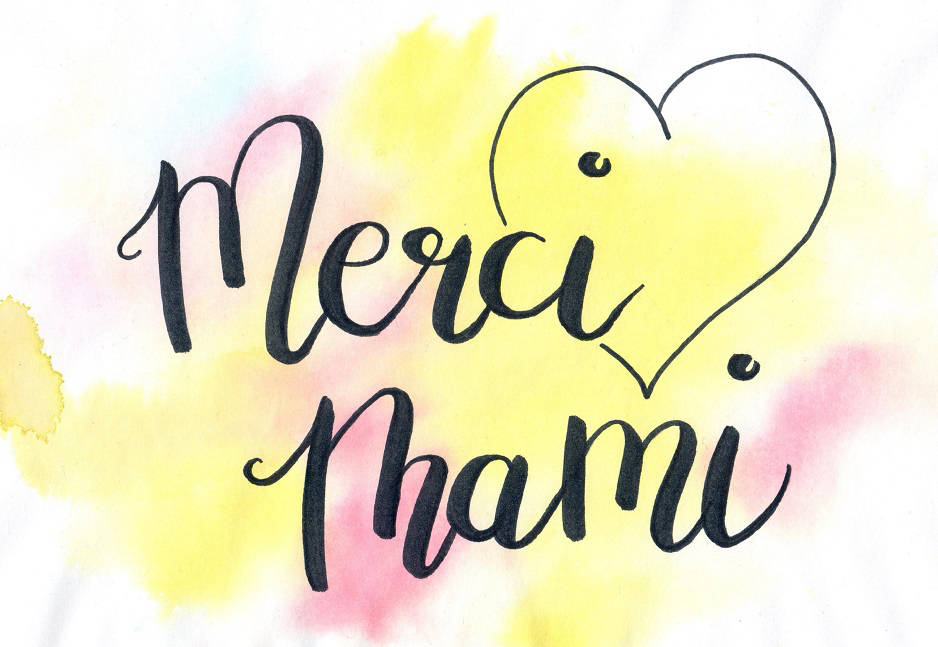 Merci
Mami